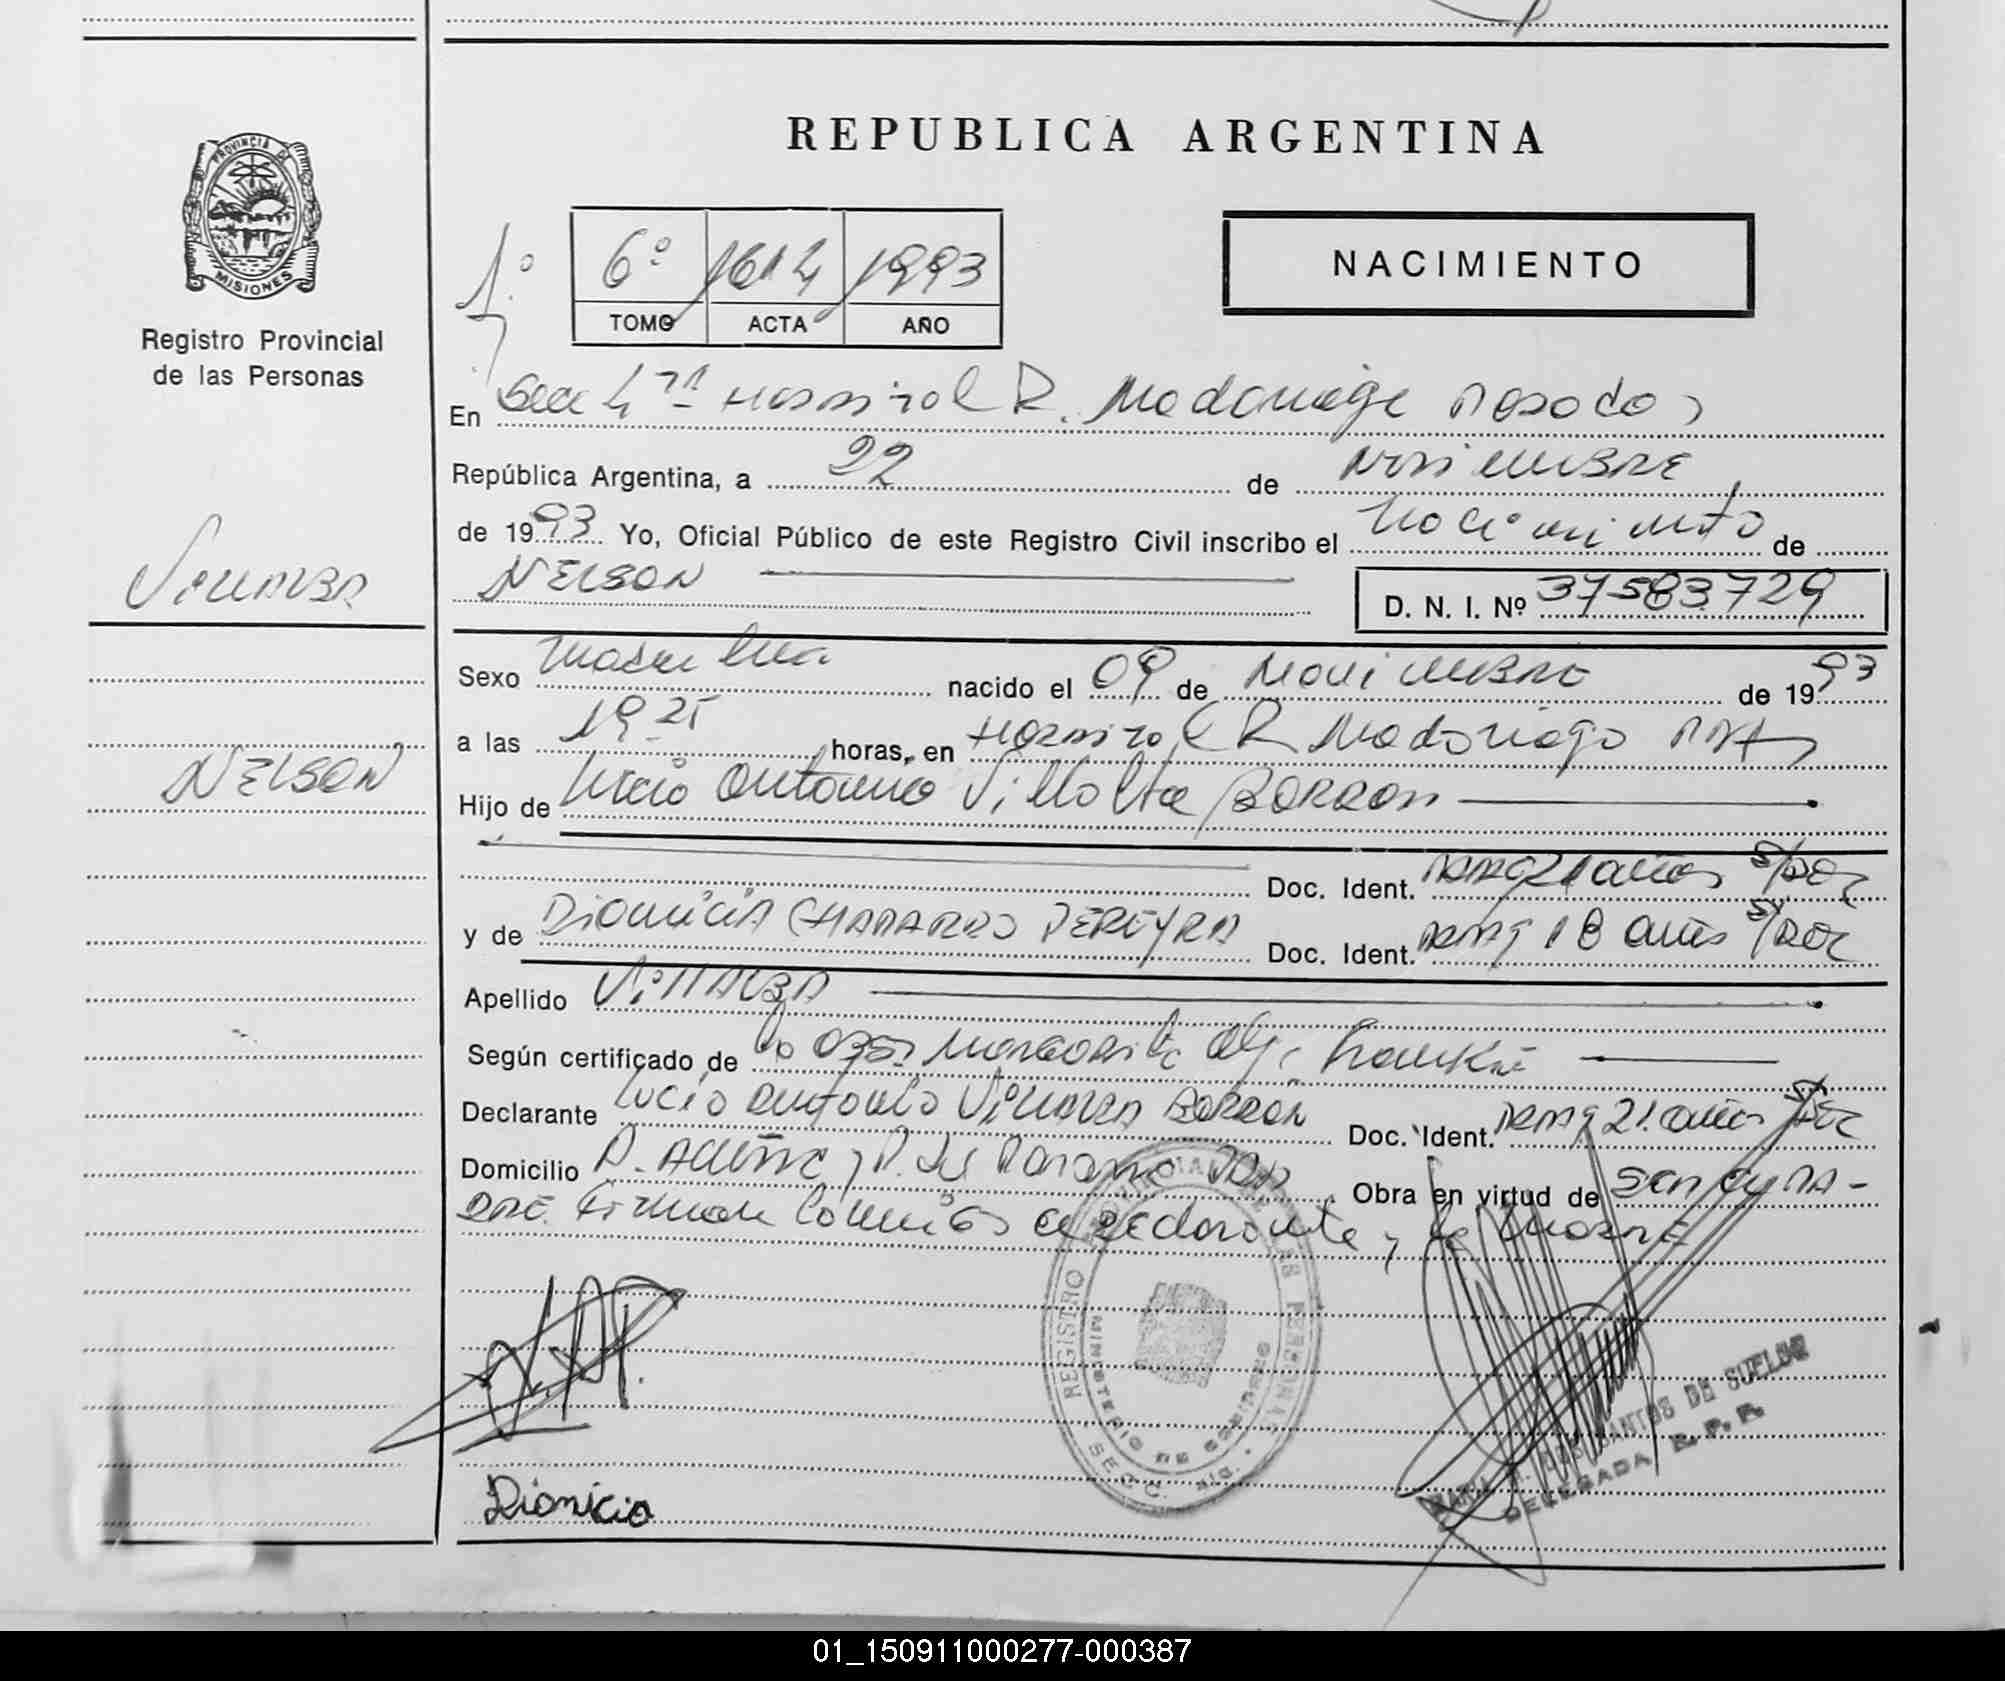 PROVINCIA DE MISIONES
Registro Provincial
de las Personas
REPUBLICA ARGENTINA
NACIMIENTO
1º
6º 1614 1993
TOMO ACTA AÑO
En Secc 4ta Hospital R. Madariaga Posadas
República Argentina, a 22 de Noviembre
de 1993 Yo, Oficial Público de este Registro Civil inscribo el Nacimiento de
NELSON D. N. I. Nº 37583729
Villalba
NELSON
Sexo Masculino nacido el 09 de Noviembre de 1993
a las 19 25 horas, en Hospital R Madariaga
Hijo de Lucio Antonio Villalba
Doc. Ident. 21 años s/doc
y de Dionicia CHAPARRO PEREYRA Doc. Ident. 18 años s/doc
Apellido Villalba
Según certificado de Margarita
Declarante Lucio Antonio Villalba Doc. Ident. 21 años s/doc
Domicilio Obra en virtud de ser su PA-
DRE. Firman Conmigo el declarante y la madre
REGISTRO DE LAS PERSONAS
MINISTERIO DE GOBIERNO
SECC.
Dionicia
SANTOS DE SUELDO
DELEGADA R. P. P.
01_150911000277-000387